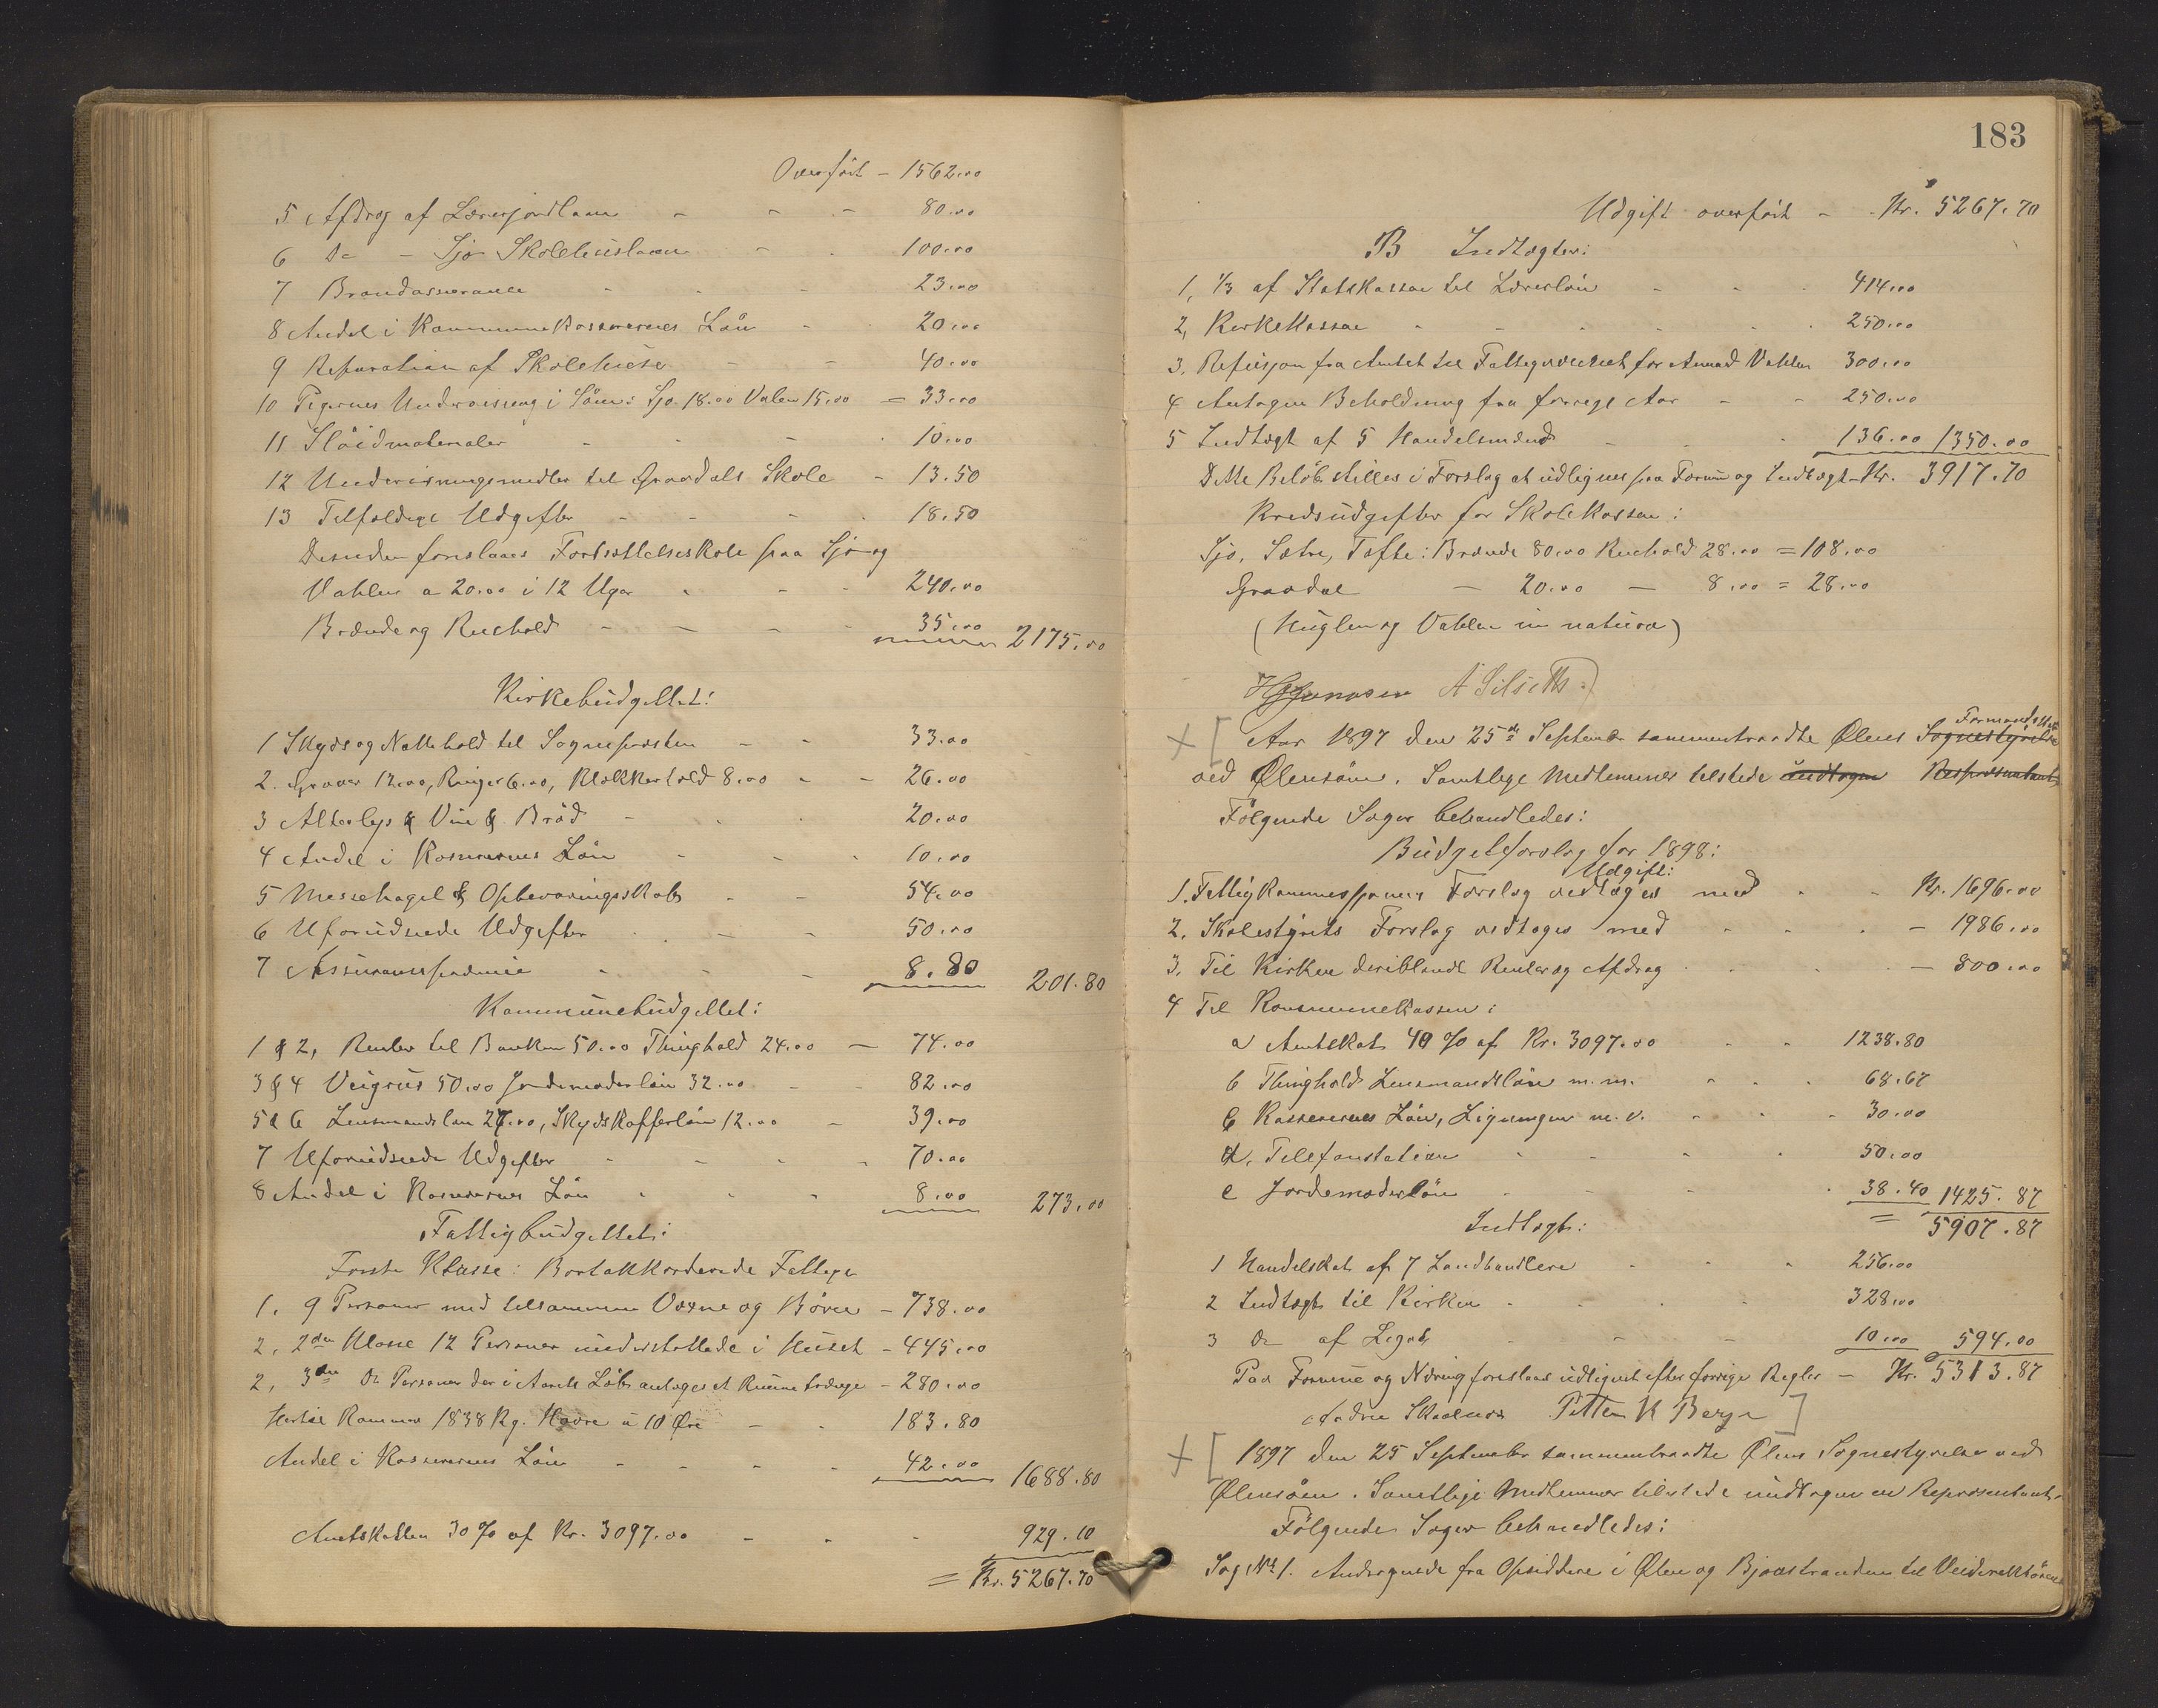 Overført - 1562.00
5 Afdrag af Lærerjordlaan - - - 80.00
6 Do - Sjo Skolehuslaan - - 100.00
7 Brandassurance - - - 23.00
8 Andel i Kommunekassererens Løn - - 20.00
9 Reparation af Skolehuse - - 40.00
10 Pigernes Undervisning i Søm: Sjo 18.00 Valen 15.00 = 33.00
11 Sløidmaterialer - - - - 10.00
12 Undervisningsmidler til Graadals Skole - 13.50
13 Tilfældige Udgifter - - - - 18.50
Desuden foreslaaes Fortsættelsesskole paa Sjo og
Vahlen a 20.00 i 12 Uger - - - 240.00
Brænde og Renhold - - - - 35.00 2175.00
Kirkebudgettet:
1 Skyds og Nattehold til Sognepræsten - - 33.00
2. Graver 12.00, Ringer 6.00, Klokkerhold 8.00 - - 26.00
3 Alterlys & Vin & Brød - - - 20.00
4 Andel i Kassererens Løn - - - 10.00
5 Messehagel & Opbevaringsskab - - 54.00
6 Uforudseede Udgifter - - - 50.00
7 Assurancepræmie - - - 8.80 201.80
Kommunebudgettet:
1 & 2, Renter til Banken 50.00 Thinghold 24.00 - 74.00
3 & 4 Veigrus 50.00 Jordemoderløn 32.00 - - 82.00
5 & 6 Lensmandsløn 27.00, Skydsskafferløn 12.00 - 39.00
7 Uforudseede Udgifter - - - - 70.00
8 Andel i Kassererens Løn - - - 8.00 273.00
Fattigbudgettet:
Første Klasse: Bortakkorderede Fattige
1. 9 Personer med tilsammen Voxne og Børn - 738.00
2. 2den Klasse 12 Personer understøttede i Huset - 445.00
2, 3die Do Personer der i Aarets Løb antages at kunne - 280.00
Hertil Kommer 1838 Kg. Havre a 10 Øre - - 183.80
Andel i Kassererens Løn - - - - 42.00 1688.80
Amtskatten 30 % af Kr. 3097.00 - - - 929.10
= Kr. 5267.70
183
Udgift overført - Kr. 5267.70
B Indtægter:
1, 1/3 af Statskassen til Lærerløn - - - 414.00
2, Kirkekassen - - - - - 250.00
3. Refusjon fra Amtet til Fattigvæsenet for Amund Vahlen 300.00
4 Antagen Beholdning fra forrige Aar - - 250.00
5 Indtægt af 5 Handelsmænd - - - 136.00 1350.00
Dette Beløb stilles i Forslag at udlignes paa Formue og Indtægt - Kr. 3917.70
Kredsudgifter for Skolekassen:
Sjo, Sætre, Tofte: Brænde 80.00 Renhold 28.00 = 108.00
Graadal - 20.00 - 8.00 = 28.00
(Huglen og Vahlen in natura)
A Silseth.
Aar 1897 den 25de September sammentraadte Ølens Sognestyrelse Formandskab
ved Ølensøen. Samtlige Medlemmer tilstede undtagen Repræsentant
Følgende Sager behandledes:
Budgetforslag for 1898:
Udgift:
1. Fattigkommissjonens Forslag vedtoges med - - Kr. 1696.00
2. Skolestyrets Forslag vedtoges med - - - - 1986.00
3. Til Kirken deriblandt Renter og Afdrag - - - - 800.00
4 Til Kommunekassen:
a Amtskat 40 % af Kr. 3097.00 - - 1238.80
b Thinghold Lensmandsløn m. m. - - - 68.67
c Kassererens Løn, Ligningen m. v. - - - 30.00
d. Telefonstation - - - - 50.00
e Jordemoderløn - - - 38.40 1425.87
= 5907.87
Indtægt:
1 Handelskat af 7 Landhandlere - - - 256.00
2 Indtægt til Kirken - - - - 328.00
3 Do af Legat - - - 10.00 594.00
Paa Formue og Næring foreslaaes udlignet efter forrige Regler - Kr. 5313.87
Petter K Berge
1897 den 25 September sammentraadte Ølens Sognestyrelse ved
Ølensøen. Samtlige Medlemmer tilstede undtagen en Repræsentant.
Følgende Sager behandledes:
Sag No 1. Andragende fra Opsiddere i Ølen og Bjoastranden til Veidirektøren